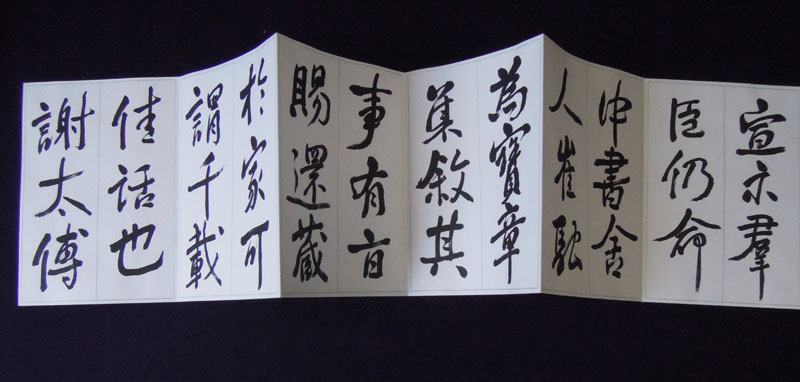 宣示羣
臣仍命
中書舍
人崔融
為寶章
集敘其
事有旨
賜還藏
於家可
謂千載
佳話也
謝太傅